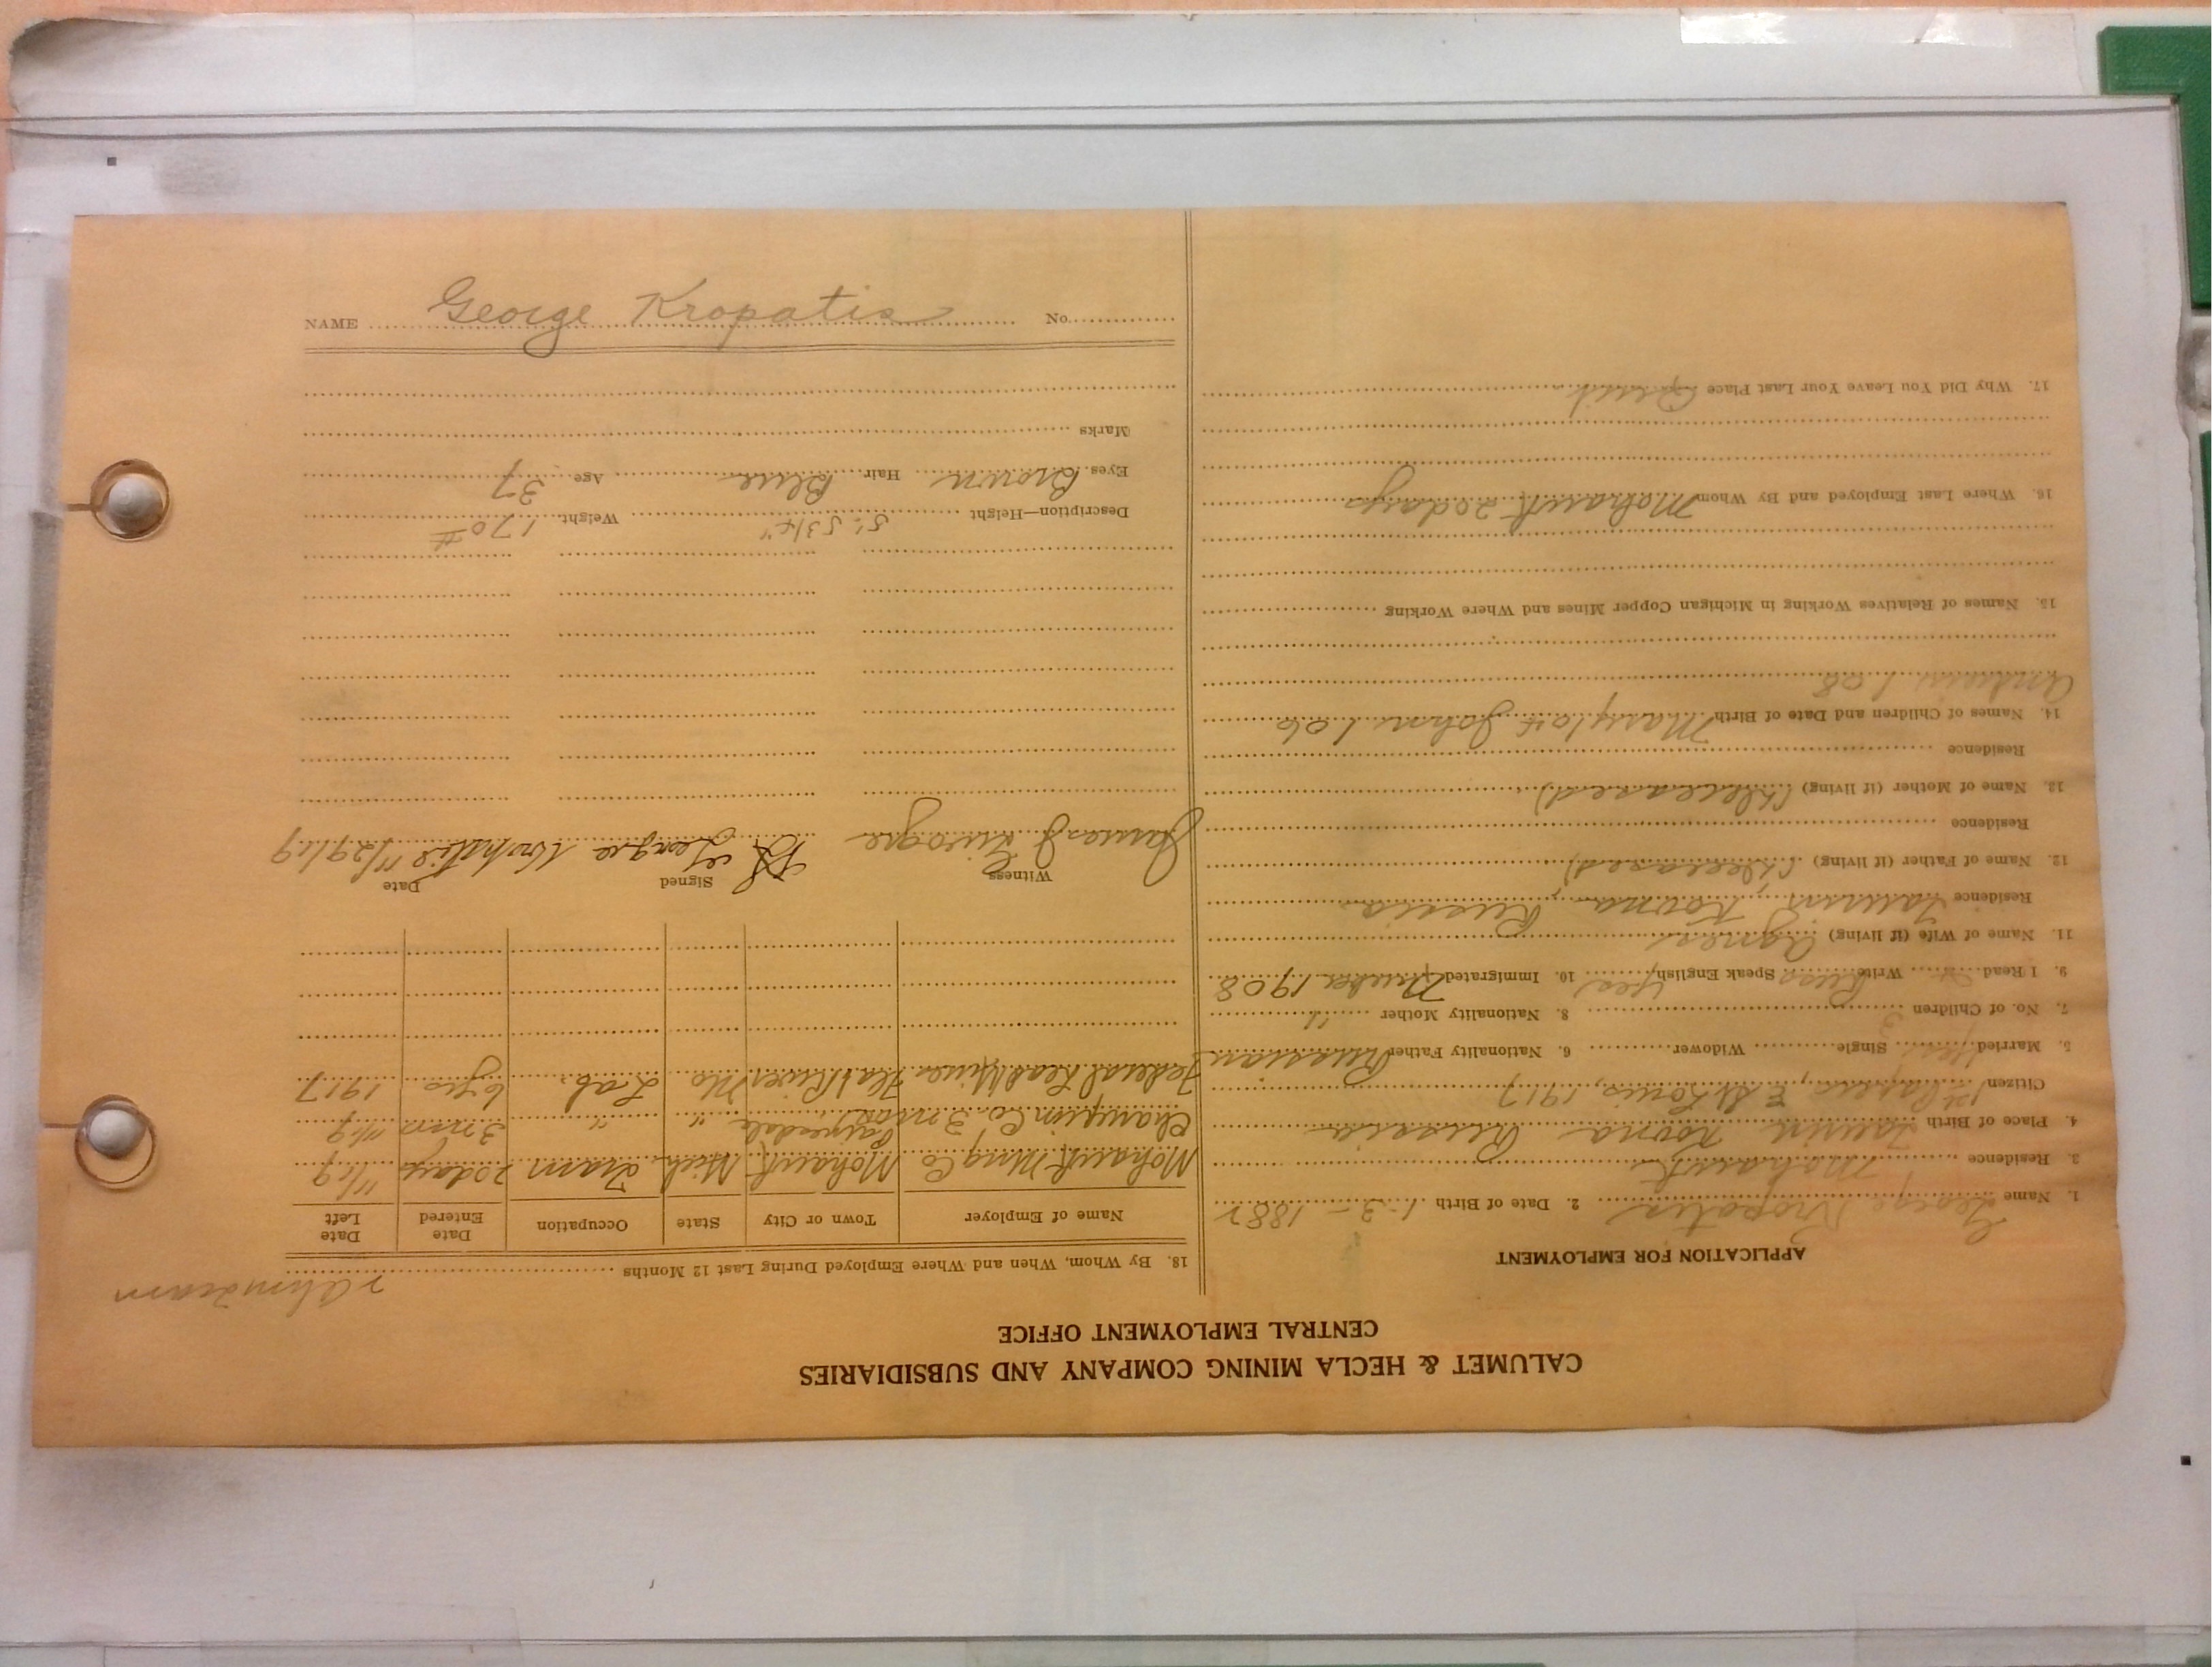 CALUMET & HECLA MINING COMPANY AND SUBSIDIARIES
CENTRAL EMPLOYMENT OFFICE
APPLICATION FOR EMPLOYMENT
1. Name George Kropatis 2. Date of Birth 1-3-1882
3. Residence Mohawk
4. Place of Birth Kovna Russia
Citizen 1st Papers E St Louis, 1917
5. Married Yes Single Widower 6. Nationality Father Russian
7. No. of Children 3 8. Nationality Mother "
9. I Read Write Russ Speak English Yes 10. Immigrated 1908
11. Name of Wife (if living) Agnes
Residence Kovna, Russia
12. Name of Father (if living) (Deceased)
Residence
13. Name of Mother (if living) (Deceased)
Residence
14. Names of Children and Date of Birth Mary 1 04 John 1 06
Andrew 1 08
15. Names of Relatives Working in Michigan Copper Mines and Where Working
16. Where Last Employed and By Whom Mohawk 20 days
17. Why Did You Leave Your Last Place Quit
18. By Whom, When and Where Employed During Last 12 Months
Name of Employer Town or City State Occupation Date Entered Date Left
Mohawk Mng Co Mohawk Mich Tram 20 days 11/19
Champion Co. 3 mos Painesdale " " 3 mos 11/19
Federal Lead Mine Flat River Mo Lab. 6 yrs 1917
Witness Signed Date
James J George 11/29/19
Description—Height 5' 5 3/4" Weight 170#
Eyes Brown Hair Blue Age 37
Marks
NAME George Kropatis No.